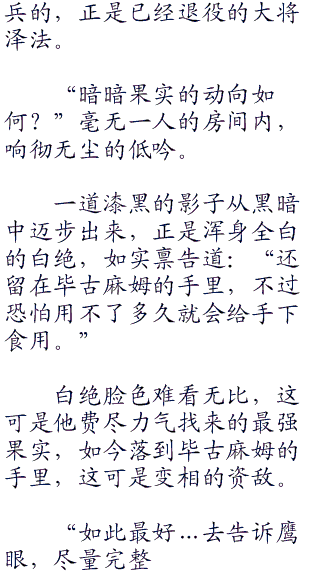 兵的，正是已经退役的大将
泽法。
“暗暗果实的动向如
何？”毫无一人的房间内，
响彻无尘的低吟。
一道漆黑的影子从黑暗
中迈步出来，正是浑身全白
的白绝，如实禀告道：“还
留在毕古麻姆的手里，不过
恐怕用不了多久就会给手下
食用。”
白绝脸色难看无比，这
可是他费尽力气找来的最强
果实，如今落到毕古麻姆的
手里，这可是变相的资敌。
“如此最好…去告诉鹰
眼，尽量完整